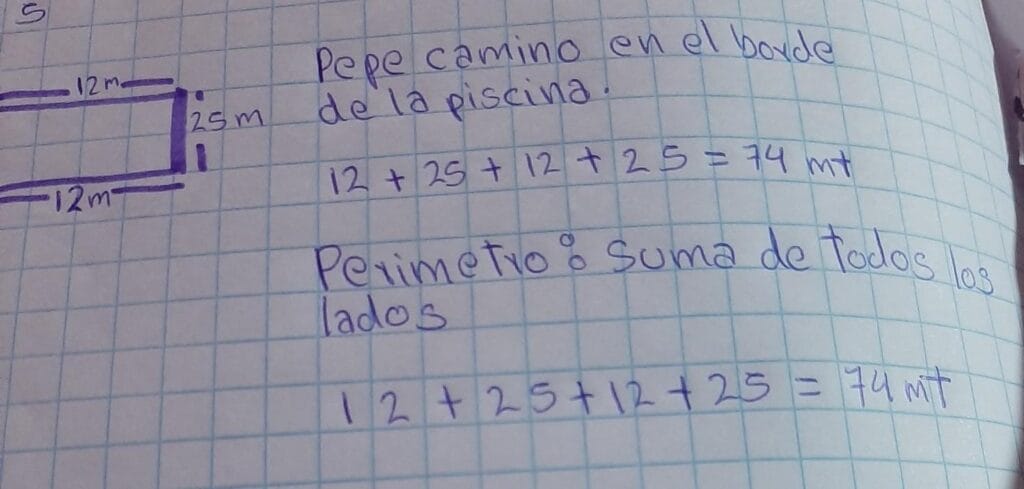 5
12m
25m
12m
Pepe camino en el borde
de la piscina.
12 + 25 + 12 + 25 = 74 mt
Perimetro: Suma de todos los
lados
12 + 25 + 12 + 25 = 74 mt